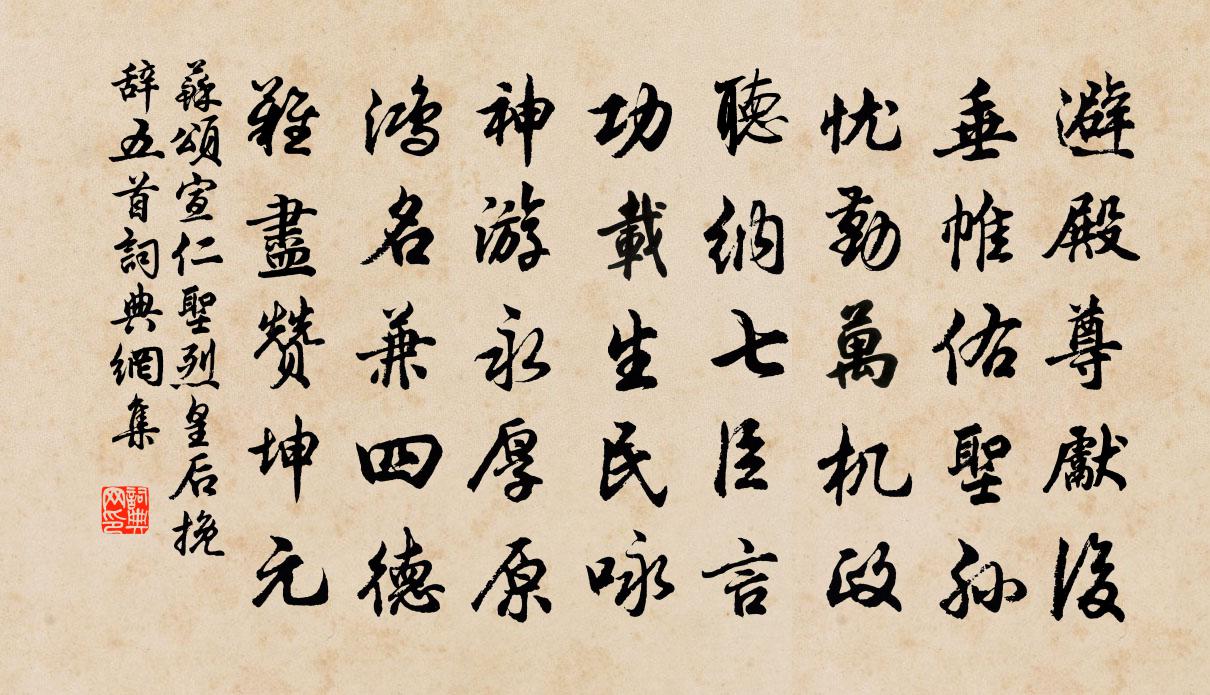 避殿尊獻後
垂帷佑聖孫
忧勤萬机政
聽納七臣言
功載生民咏
神游永厚原
鴻名兼四德
難盡贊坤元
蘇頌宣仁聖烈皇后挽
辞五首詞典網集
詞典
网印